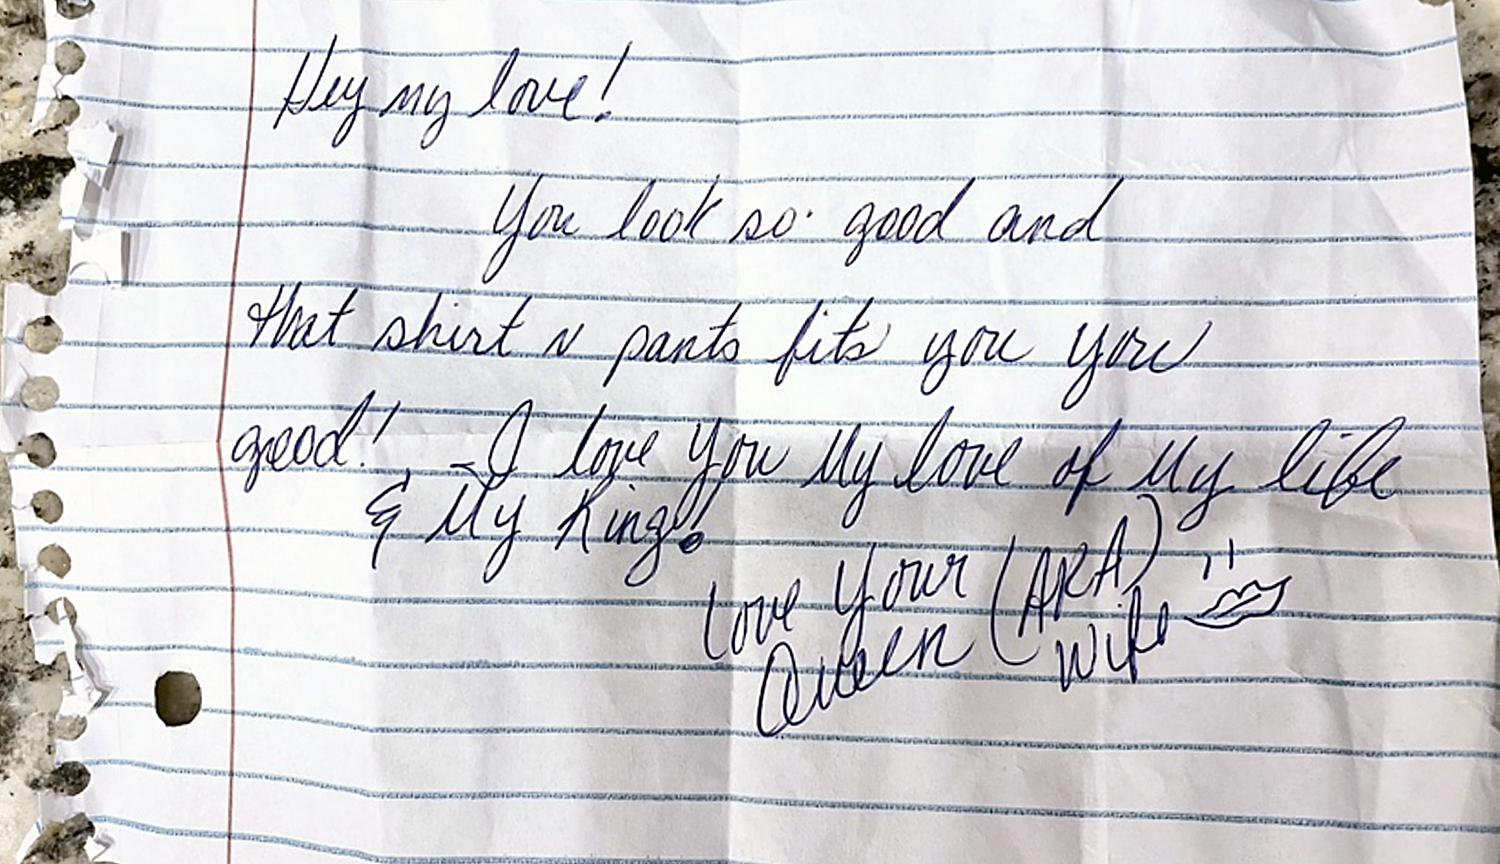 Hey my love!
You look so good and
that shirt n pants fits you you
good! - I love you My love of My life
& My King!
Love Your (AKA)
Queen Wife